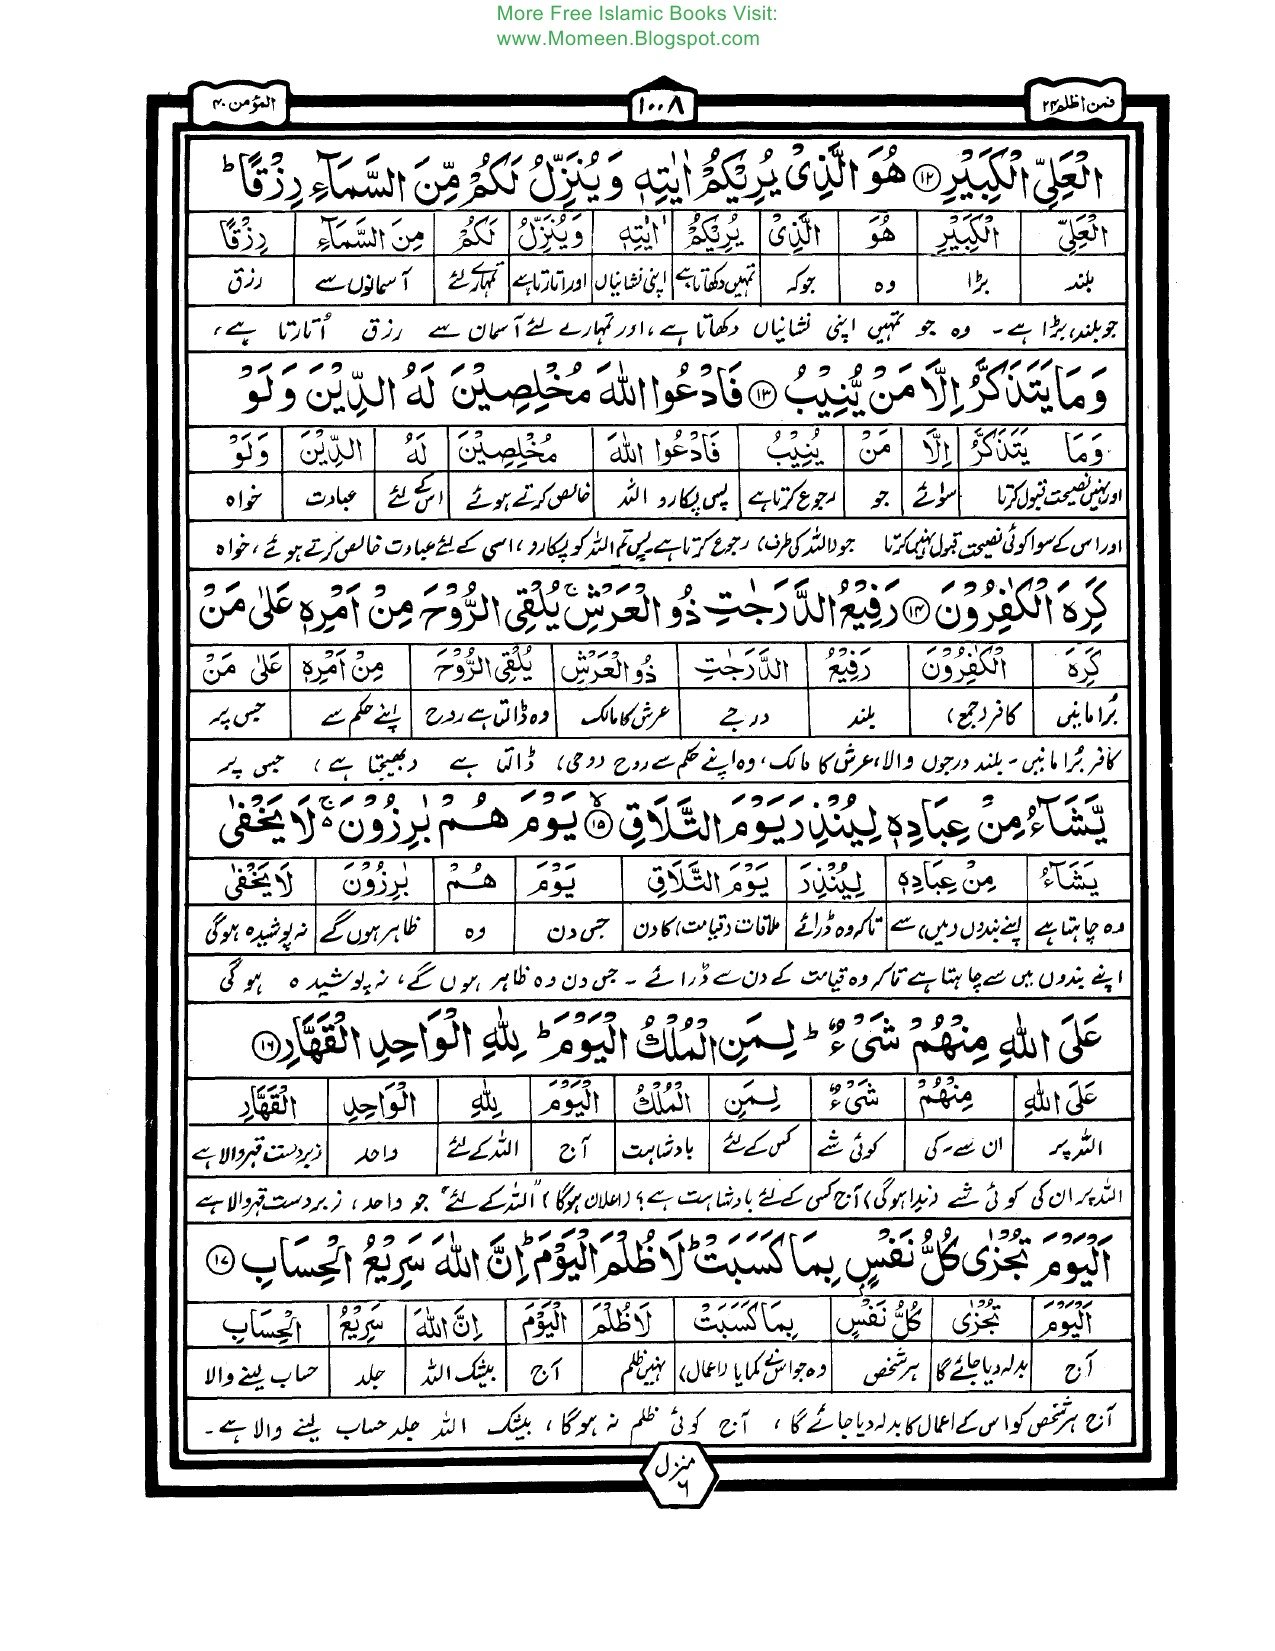 More Free Islamic Books Visit:
www.Momeen.Blogspot.com
فمن اظلم ٢٤
١٠٠٨
المؤمن ٤٠
الْعَلِيِّ الْكَبِيْرِ ⑫ هُوَ الَّذِىْ يُرِيْكُمْ اٰيٰتِهٖ وَ يُنَزِّلُ لَكُمْ مِّنَ السَّمَآءِ رِزْقًا ؕ
الْعَلِيِّ الْكَبِيْرِ هُوَ الَّذِىْ يُرِيْكُمْ اٰيٰتِهٖ وَيُنَزِّلُ لَكُمْ مِنَ السَّمَآءِ رِزْقًا
بلند بڑا وہ جوکہ تمہیں دکھاتا ہے اپنی نشانیاں اور اتارتا ہے تمہارے لئے آسمانوں سے رزق
جو بلند، بڑا ہے۔ وہ جو تمہیں اپنی نشانیاں دکھاتا ہے، اور تمہارے لئے آسمان سے رزق اُتارتا ہے،
وَ مَا يَتَذَكَّرُ اِلَّا مَنْ يُّنِيْبُ ⑬ فَادْعُوا اللّٰهَ مُخْلِصِيْنَ لَهُ الدِّيْنَ وَ لَوْ
وَمَا يَتَذَكَّرُ اِلَّا مَنْ يُنِيْبُ فَادْعُوا اللّٰهَ مُخْلِصِيْنَ لَهُ الدِّيْنَ وَلَوْ
اور نہیں نصیحت قبول کرتا سوائے جو رجوع کرتا ہے پس پکارو اللہ خالص کرتے ہوئے اس کے لئے عبادت خواہ
اور اس کے سوا کوئی نصیحت قبول نہیں کرتا جو (اللہ کی طرف) رجوع کرتا ہے پس تم اللہ کو پکارو، اسی کے لئے عبادت خالص کرتے ہوئے، خواہ
كَرِهَ الْكٰفِرُوْنَ ⑭ رَفِيْعُ الدَّرَجٰتِ ذُو الْعَرْشِ ۚ يُلْقِى الرُّوْحَ مِنْ اَمْرِهٖ عَلٰى مَنْ
كَرِهَ الْكٰفِرُوْنَ رَفِيْعُ الدَّرَجٰتِ ذُو الْعَرْشِ يُلْقِى الرُّوْحَ مِنْ اَمْرِهٖ عَلٰى مَنْ
بُرا مانیں کافر (جمع) بلند درجے عرش کا مالک وہ ڈالتا ہے روح اپنے حکم سے جس پر
کافر بُرا مانیں۔ بلند درجوں والا، عرش کا مالک، وہ اپنے حکم سے روح (وحی) ڈالتا ہے (بھیجتا ہے) جس پر
يَّشَآءُ مِنْ عِبَادِهٖ لِيُنْذِرَ يَوْمَ التَّلَاقِ ⑮ يَوْمَ هُمْ بٰرِزُوْنَ ۚ لَا يَخْفٰى
يَشَآءُ مِنْ عِبَادِهٖ لِيُنْذِرَ يَوْمَ التَّلَاقِ يَوْمَ هُمْ بٰرِزُوْنَ لَا يَخْفٰى
وہ چاہتا ہے اپنے بندوں (میں) سے تاکہ وہ ڈرائے ملاقات (قیامت) کا دن جس دن وہ ظاہر ہوں گے نہ پوشیدہ ہوگی
اپنے بندوں میں سے چاہتا ہے تاکہ وہ قیامت کے دن سے ڈرائے۔ جس دن وہ ظاہر ہوں گے، نہ پوشیدہ ہو گی
عَلَى اللّٰهِ مِنْهُمْ شَىْءٌ ؕ لِمَنِ الْمُلْكُ الْيَوْمَ ؕ لِلّٰهِ الْوَاحِدِ الْقَهَّارِ ⑯
عَلَى اللّٰهِ مِنْهُمْ شَىْءٌ لِمَنِ الْمُلْكُ الْيَوْمَ لِلّٰهِ الْوَاحِدِ الْقَهَّارِ
اللہ پر ان سے۔کی کوئی شے کس کے لئے بادشاہت آج اللہ کے لئے واحد زبردست قہر والا ہے
اللہ پر ان کی کوئی شے (پیدا ہوگی) آج کس کے لئے بادشاہت ہے؟ (اعلان ہوگا) "اللہ کے لئے" جو واحد، زبردست قہر والا ہے
اَلْيَوْمَ تُجْزٰى كُلُّ نَفْسٍۭ بِمَا كَسَبَتْ ؕ لَا ظُلْمَ الْيَوْمَ ؕ اِنَّ اللّٰهَ سَرِيْعُ الْحِسَابِ ⑰
اَلْيَوْمَ تُجْزٰى كُلُّ نَفْسٍ بِمَا كَسَبَتْ لَا ظُلْمَ الْيَوْمَ اِنَّ اللّٰهَ سَرِيْعُ الْحِسَابِ
آج بدلہ دیا جائے گا ہر شخص وہ جو اس نے کمایا (اعمال) نہیں ظلم آج بیشک اللہ جلد حساب لینے والا
آج ہر شخص کو اس کے اعمال کا بدلہ دیا جائے گا، آج کوئی ظلم نہ ہوگا، بیشک اللہ جلد حساب لینے والا ہے۔
منزل ٦